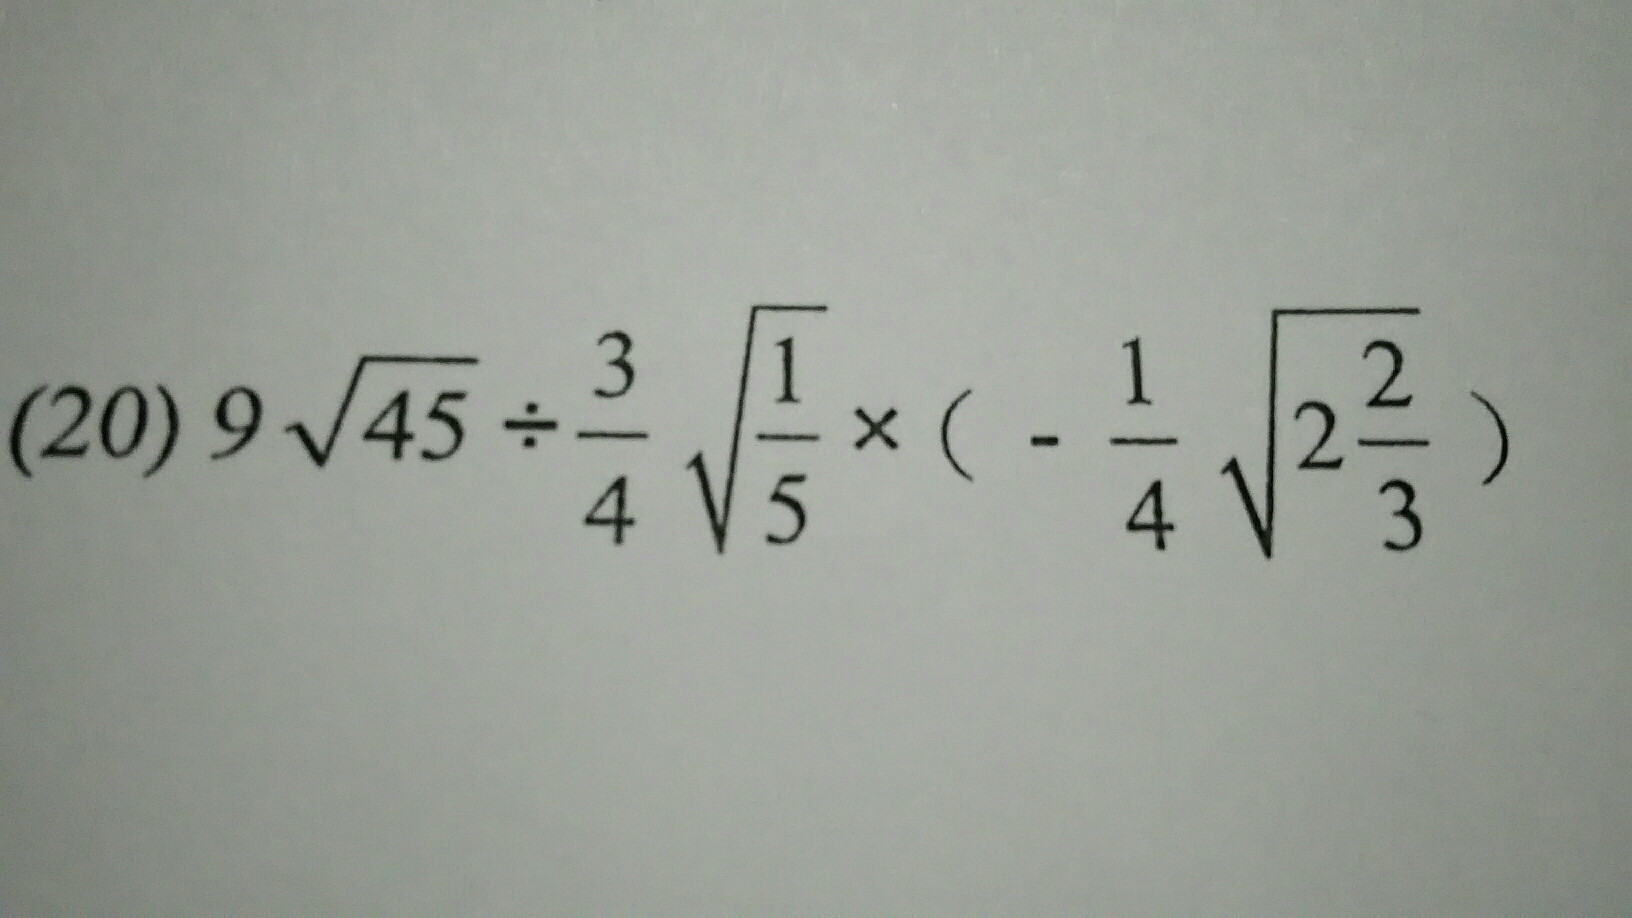 (20) 9√45 ÷ 3/4 √(1/5) × ( - 1/4 √(2 2/3) )